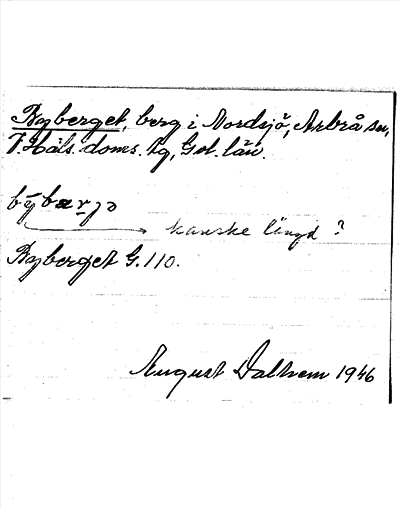 Byberget, berg i Nordsjö, Arbrå sn,
V. Häls. doms. tg, Gvl. län.
by̆bærjə
kanske längd?
Byberget G. 110.
August Dalhem 1946